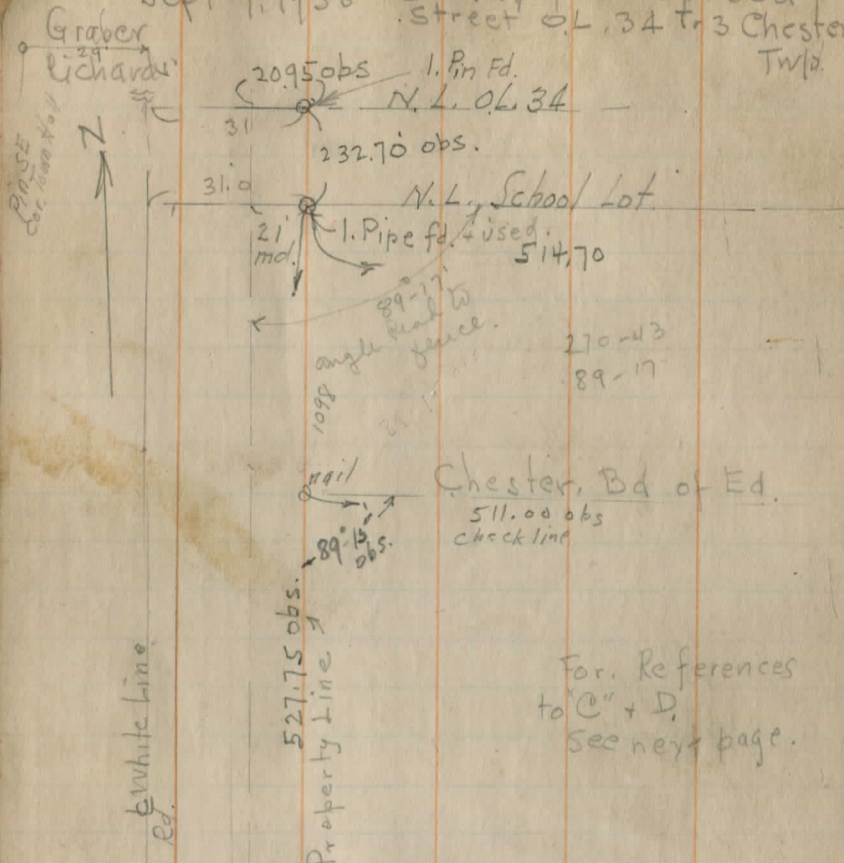 Sept 1, 1950
Street O.L. 34 Tr. 3 Chester
Twp.
Graber
29
Richards
20.95 obs
1. Pin Fd.
N. L. O.L. 34
31
232.70 obs.
31.0
N. L. School Lot
21' md.
1. Pipe fd. + used.
514.70
89°-17'
angle
to
fence.
270-43
89-17
N
nail
Chester, Bd of Ed.
511.00 obs
check line
89°-15'
obs.
527.75 obs.
Property Line
For. References
to "C" + D.
See next page.
White Line
Rd.